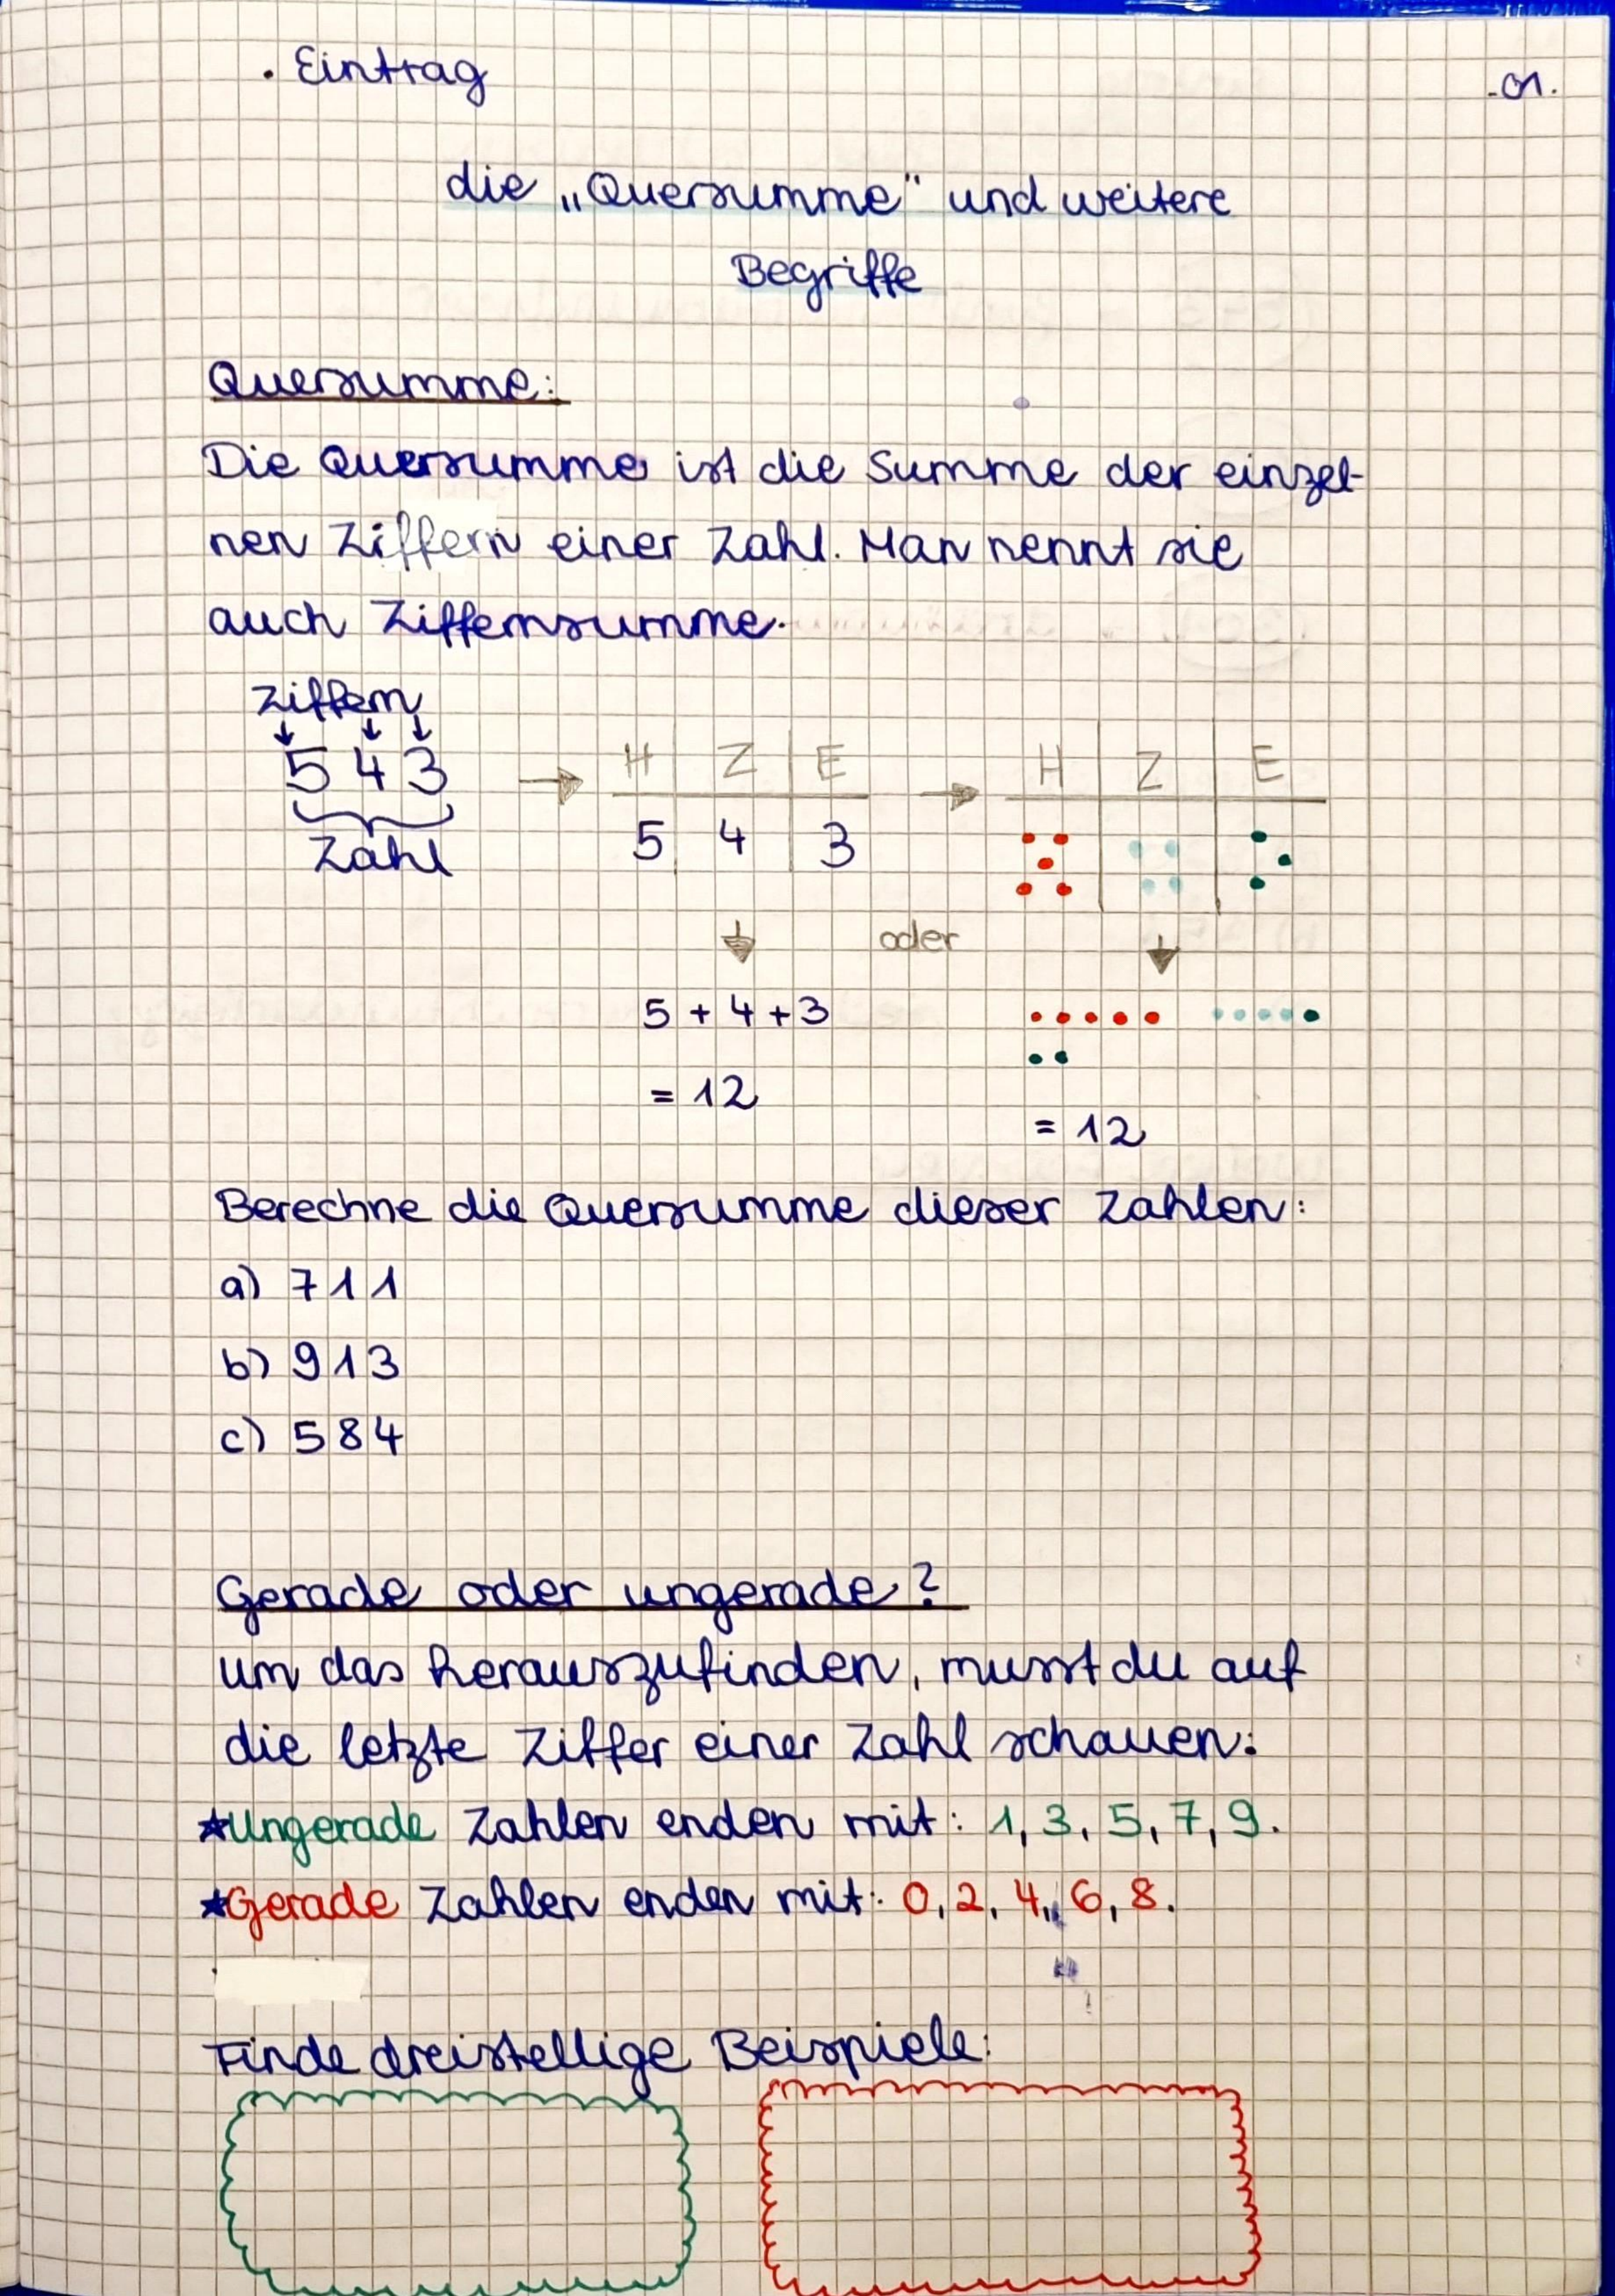 . Eintrag
-01.
die „Quersumme" und weitere
Begriffe
Quersumme:
Die Quersumme ist die Summe der einzel-
nen Ziffern einer Zahl. Man nennt sie
auch Ziffernsumme.
Ziffern
5 4 3
Zahl
H Z E
5 4 3
H Z E
oder
5 + 4 + 3
= 12
= 12
Berechne die Quersumme dieser Zahlen:
a) 711
b) 913
c) 584
Gerade oder ungerade?
um das herauszufinden, musst du auf
die letzte Ziffer einer Zahl schauen:
★Ungerade Zahlen enden mit: 1, 3, 5, 7, 9.
★Gerade Zahlen enden mit: 0, 2, 4, 6, 8.
Finde dreistellige Beispiele: